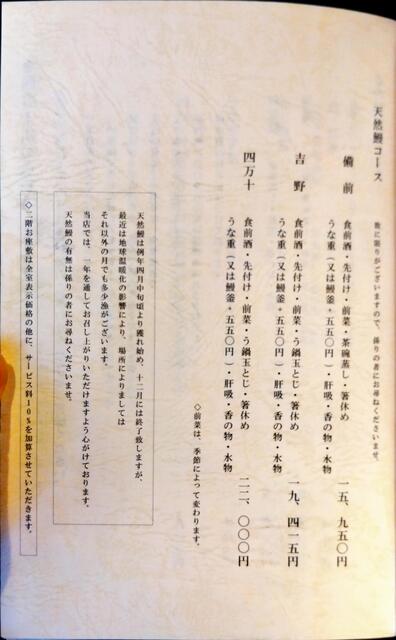 天然鰻コース
数に限りがございますので、係りの者にお尋ねくださいませ。
備前　食前酒・先付け・前菜・茶碗蒸し・箸休め
うな重（又は鰻釜＋五五〇円）・肝吸・香の物・水物　一五、九五〇円
吉野　食前酒・先付け・前菜・う鍋玉とじ・箸休め
うな重（又は鰻釜＋五五〇円）・肝吸・香の物・水物　一九、四一五円
四万十　食前酒・先付け・前菜・う鍋玉とじ・箸休め
うな重（又は鰻釜＋五五〇円）・肝吸・香の物・水物　二二、〇〇〇円
◇前菜は、季節によって変わります。
天然鰻は例年四月中旬頃より獲れ始め、十二月には終了致しますが、
最近は地球温暖化の影響により、場所によりましては
それ以外の月でも多少漁がございます。
当店では、一年を通してお召し上がりいただけますよう心がけております。
天然鰻の有無は係りの者にお尋ねくださいませ。
◇二階お座敷は全室表示価格の他に、サービス料10％を加算させていただきます。